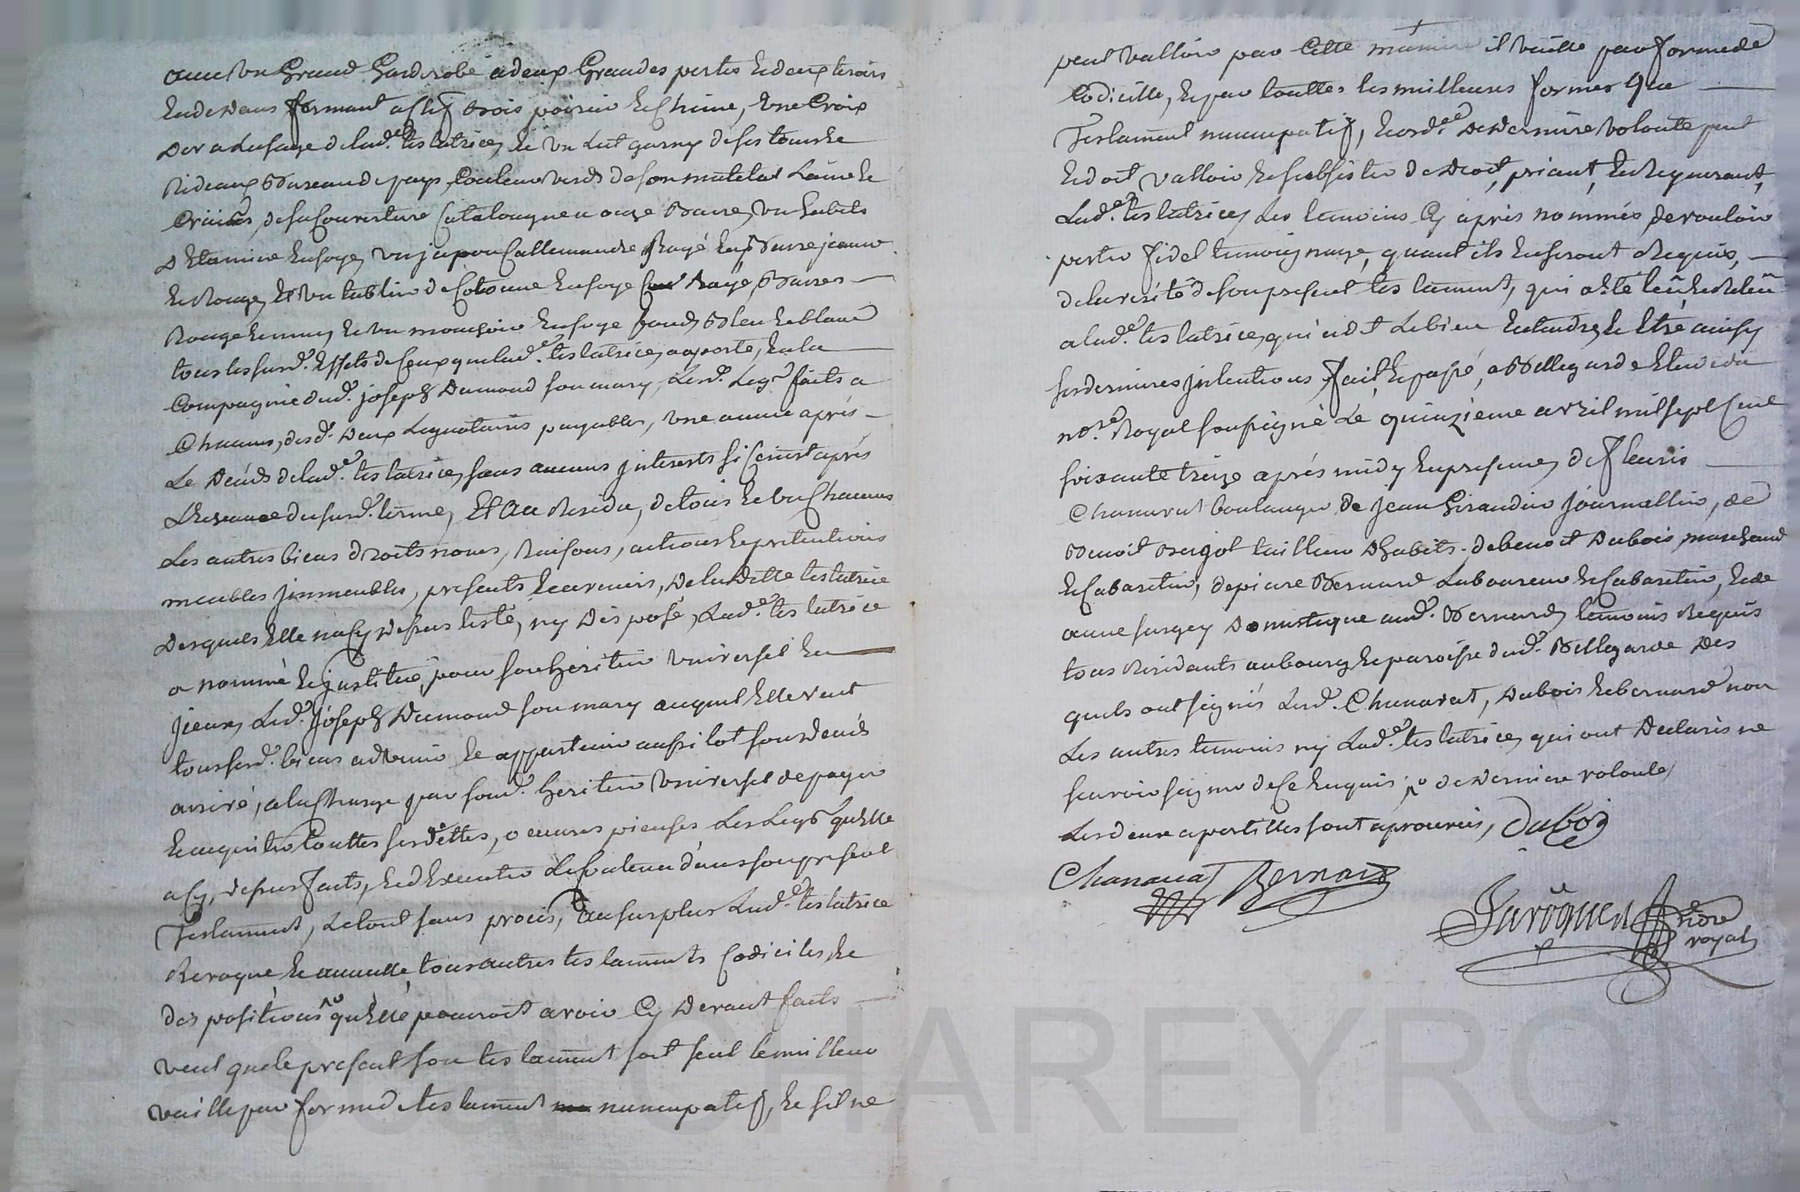 avec un Grand Garderobe a deux Grandes portes et deux tiroirs
en dedans fermant a clef bois poirier et Chaine, une Croix
D'or a Lusage de lad.e testatrice, et un Lit garny de ses tour et
Rideaux Bureau de pays Couleur verds de son matelat Laine et
de sa Couverture Catalougne a onze Barre, un habits
D'Etamine en soye, un jupon Callemandre Rayé en Barre jeaune
et Rouge, Et un tablier de Cotonne en soye Rayé, Barres
Rouge et un mouchoir en soye fonds Bleu et blanc
tous les susd.s Effets de Ceux que lad.e testatrice, a aporte, en la
Compagnie dud.t joseph Dumond son mary, Lesd.s Legs faits a
Chacuns, desd.s Deux Legataires payables, une annee après
Le Décès de lad.e testatrice, sans aucuns interests si Ce n'est après
L'Echeance du susd.t terme, Et Au Residu, de tous et un Chacuns
Les autres biens droits noms, Raisons, actions et pretentions
meubles jmmeubles, presents et avenirs, de laditte testatrice
Desquels Elle n'a Cy Dessus testé, ny Disposé, Lad.e testatrice
a nommé et justitué, pour son heritier universel et
Led.t joseph Dumond son mary auquel Elle veut
tous sesd.s biens advenir et appartenir aussitot son décès
arrivé, a la Charge par sond.t heritier universel de payer
et acquitter touttes ses dettes, oeuvres pieuses Les Legs qu'Elle
a Cy, dessus faits, et d'Executer Le Contenu dans son present
Testament, Le tout sans procès, Au surplus Lad.e testatrice
Revoque et annulle tous autres testaments Codiciles, et
Dispositions qu'Elle pourroit avoir Cy Devant faits
veut que le present son testament soit seul le meilleur
vaille par forme de testament nuncupatif, et s'il ne
peut valloir par Cette maniere il vaille par forme de
Codicille, et par touttes les meilleures formes que
Testament nuncupatif, et ord.ce de Derniere volonte peut
et doit valloir et subsister de Droit, priant, et Requerant,
Lad.e testatrice, Les temoins Cy après nommés de vouloir
porter fidel temoignage, quant ils en seront Requis,
de la verité de son present testament, qui a été leû et Relû
a lad.e testatrice, qui a dit Le bien Entendre, et Etre ainsy
ses dernieres jntentions, fait, et passé, a Bellegarde Etude du
no.re Royal soussigné Le quinzieme avril mil sept Cent
soixante treize après midy En presence, de fleuris
Chanavat boulanger, de jean Giraudin journallier, de
Benoit tailleur D'habits, de benoit Dubois, marchand
et Cabaretier, de pierre Bernard Laboureur et Cabaretier, et de
Domestique aud.t Bernard, temoins Requis
tous Residants au bourg et paroisse dud.t Bellegarde Des
quels ont signés Lesd.s Chanavat, Dubois et bernard non
Les autres temoins ny Lad.e testatrice, qui ont Declarés ne
scavoir signer de Ce Enquis, de Derniere volonte,
Les deux apostilles sont aprouvées, Duboy
Chanavat Bernard
no.re
royal